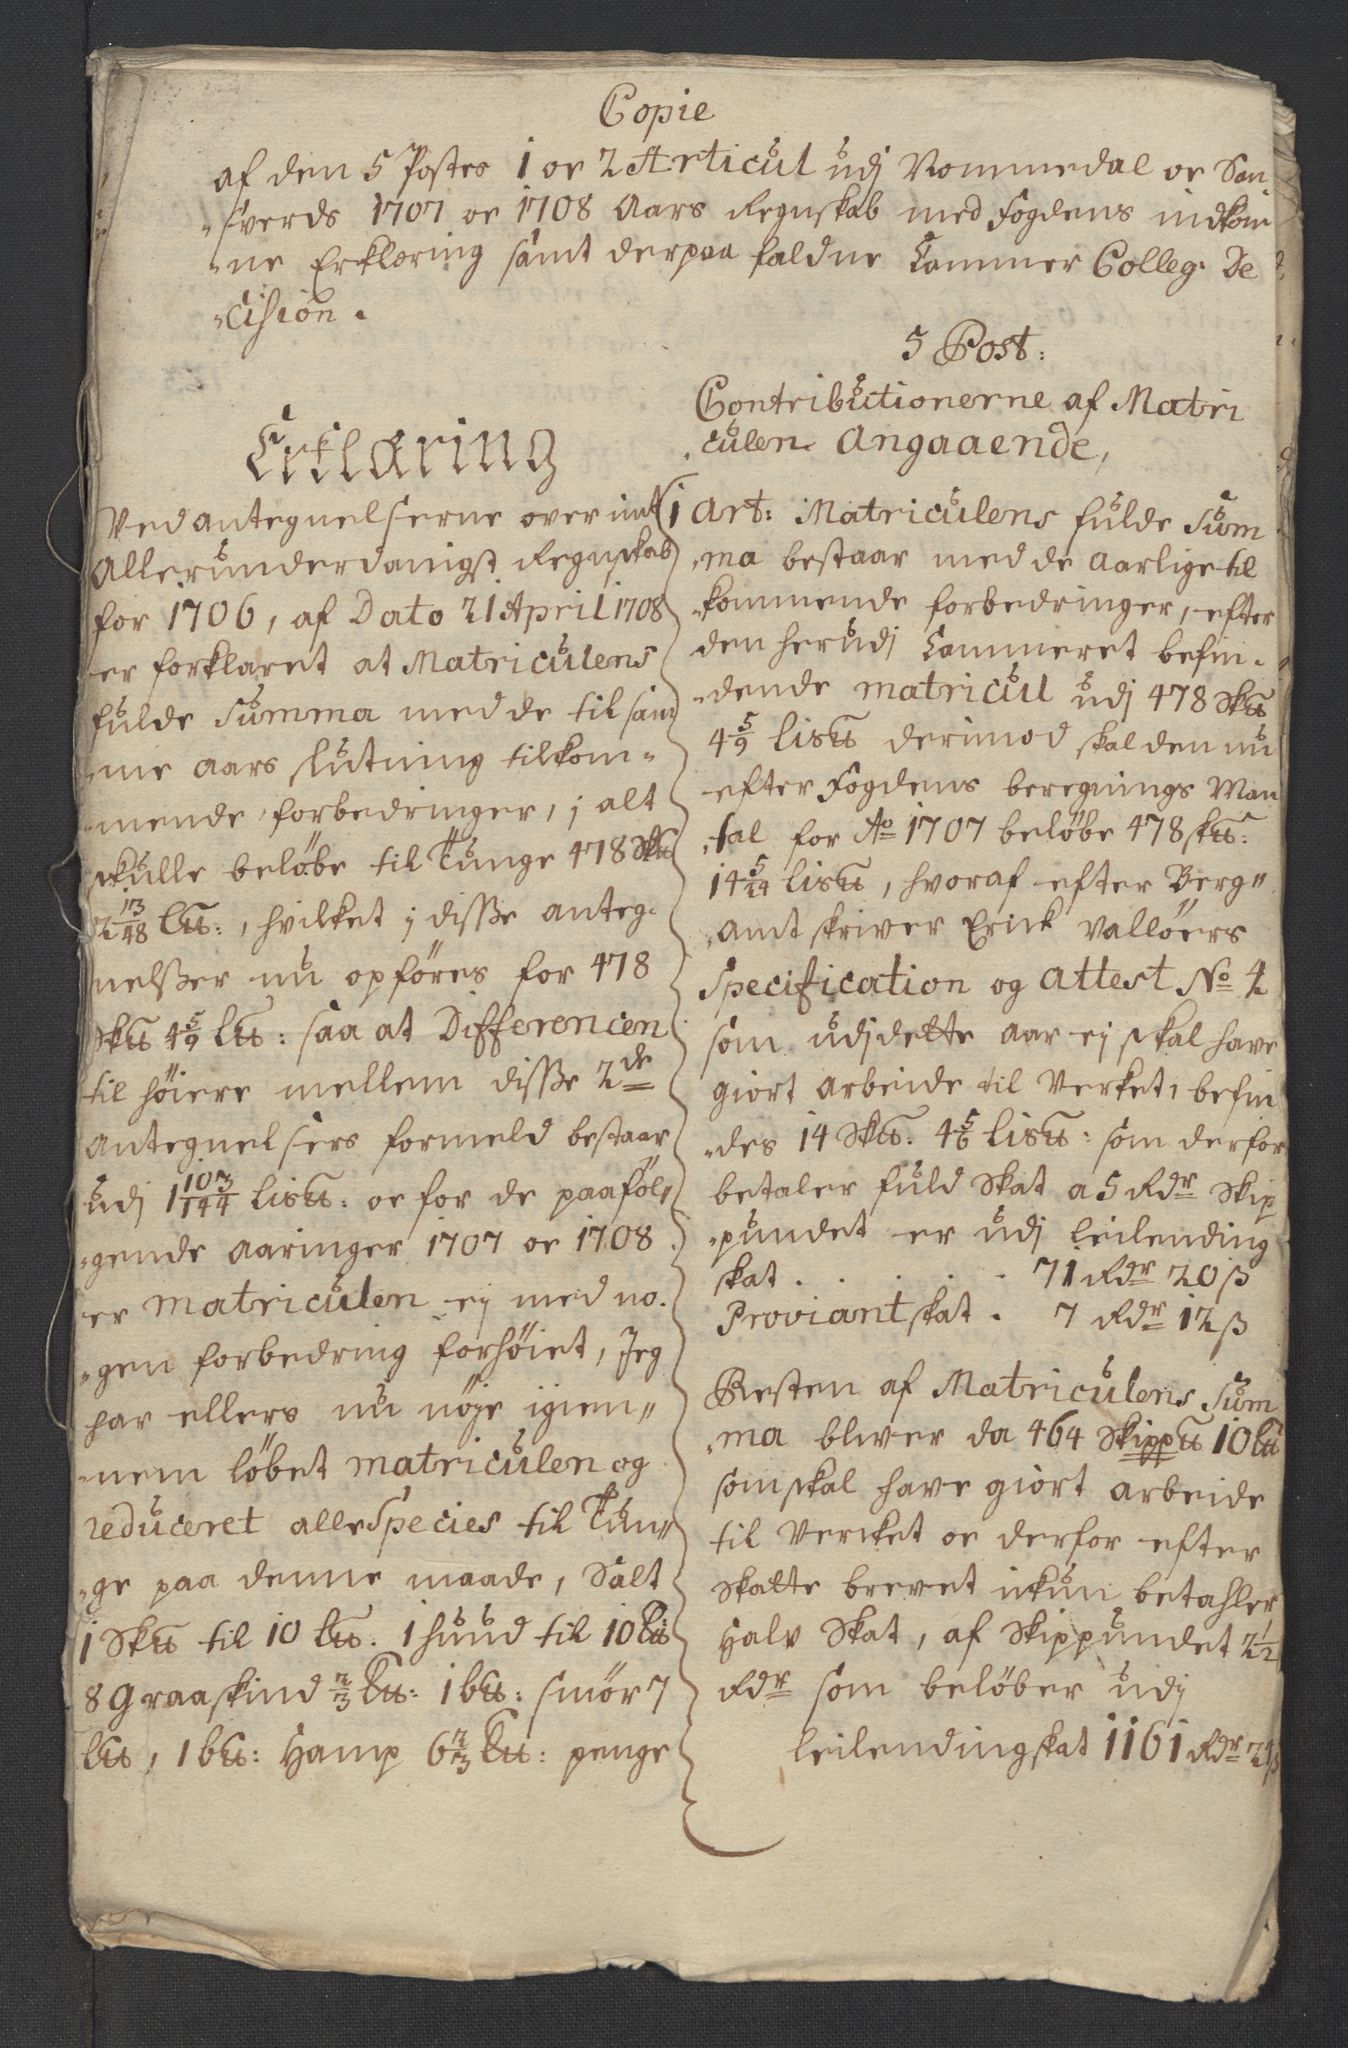 Copie
af den 5 Postes 1 oc 2 Articul udj Rommedal oc San
„sverds 1707 oc 1708 Aars Regnskab med Fogdens indkom
„ne Erklæring samt derpaa faldne Cammer Colleg. De
„cision.
Erklæring
Ved antegnelserne over mit
Allerunderdanigst Regnskab
for 1706, af Dato 21 April 1708
er forklaret at Matriculens
fulde Summa med de til sam
„me aars slutning tilkom„
„mende forbedringer, j alt
skulle beløbe til Tunge 478 Sk℔
2 13/48 L℔:, hvilket j disse anteg„
nelsser nu opføres for 478
Sk℔ 4 5/9 L℔: saa at Differencen
til høiere mellem disse 2de
Antegnelsers formeld bestaar
udj 1 103/144 Lis℔: oc for de paaføl„
„gende aaringer 1707 oc 1708
er Matriculen ej med no„
„gen forbedring forhøiet, Jeg
har ellers nu nøje igien„
„nem løbet matriculen og
reduceret alle Species til Tun„
„ge paa denne maade, Salt
1 Sk℔ til 10 L℔. 1 huud til 10 L℔
8 Graaskind 2/3 L℔: 1 b℔: smør 7
L℔, 1 b℔: Hamp 6 2/3 L℔: penge
5 Post:
Contributionerne af Matri
„culen Angaaende,
1 Art: Matriculens fulde Sum
„ma bestaar med de Aarlige til
„kommende forbedringer, efter
den herudj Cammeret befin„
„dende matricul udj 478 Sk℔
4 5/9 Lis℔ derimod skal den nu
efter Fogdens beregnings Man
„tal for Ao 1707 beløbe 478 Sk℔:
14 5/24 Lis℔, hvoraf efter Berg„
„amt skriver Erick Valløers
Specification og Attest No 4
som udj dette aar ej skal have
giort arbeide til Verket, befin
„des 14 Sk℔. 4 5/6 Lis℔: som derfor
betaler fuld Skat a 5 Rdr Skip
„pundet er udj Leilending
skat . . . . 71 Rdr 20 ß
Proviantskat . 7 Rdr 12 ß
Resten af Matriculens Sum
„ma bliver da 464 Skipp℔ 10 L℔
som skal have giort arbeide
til Vercket oc derfor efter
Skatte brevet ickun betahler
Halv Skat, af Skippundet 2 1/2
Rdr som beløber udj
Leilendingskat 1161 Rdr 24 ß